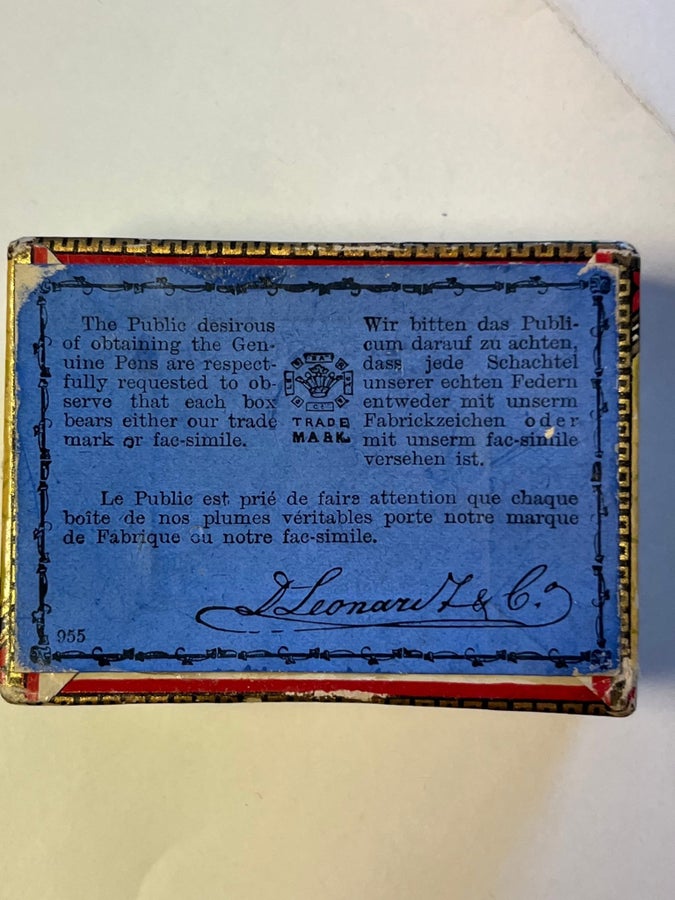 The Public desirous
of obtaining the Gen-
uine Pens are respect-
fully requested to ob-
serve that each box
bears either our trade
mark or fac-simile.
TRADE
MARK.
Wir bitten das Publi-
cum darauf zu achten,
dass jede Schachtel
unserer echten Federn
entweder mit unserm
Fabrickzeichen oder
mit unserm fac-simile
versehen ist.
Le Public est prié de faire attention que chaque
boîte de nos plumes véritables porte notre marque
de Fabrique ou notre fac-simile.
D Leonardt & Co.
955